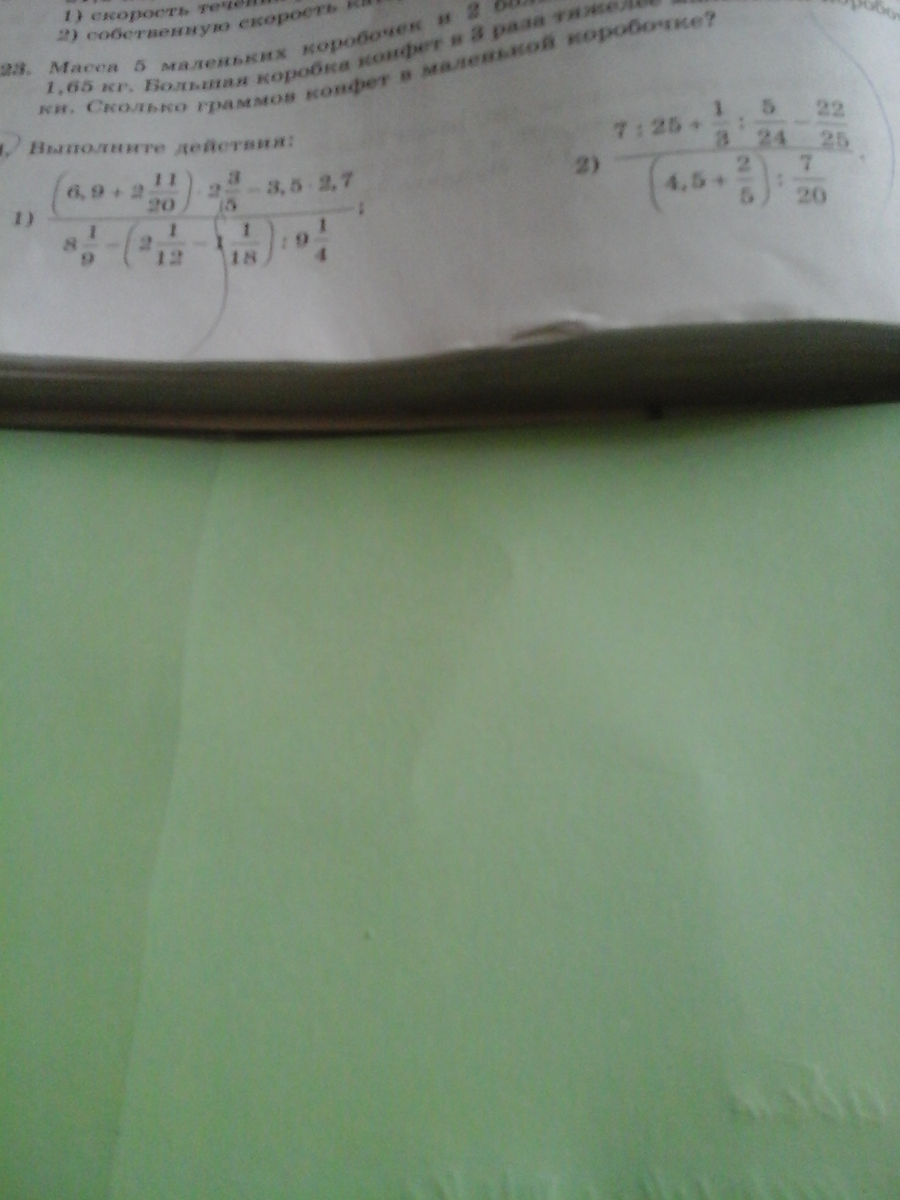 1) скорость течения
2) собственную скорость
23. Масса 5 маленьких коробочек и 2
1,65 кг. Большая коробка конфет в 3 раза тяжелее
ки. Сколько граммов конфет в маленькой коробочке?
Выполните действия:
1) ((6,9 + 2 11/20) · 2 3/5 − 3,5 · 2,7) / (8 1/9 − (2 1/12 − 1 1/18) : 9 1/4);
2) (7 : 25 + 1/3 : 5/24 − 22/25) / ((4,5 + 2/5) : 7/20).